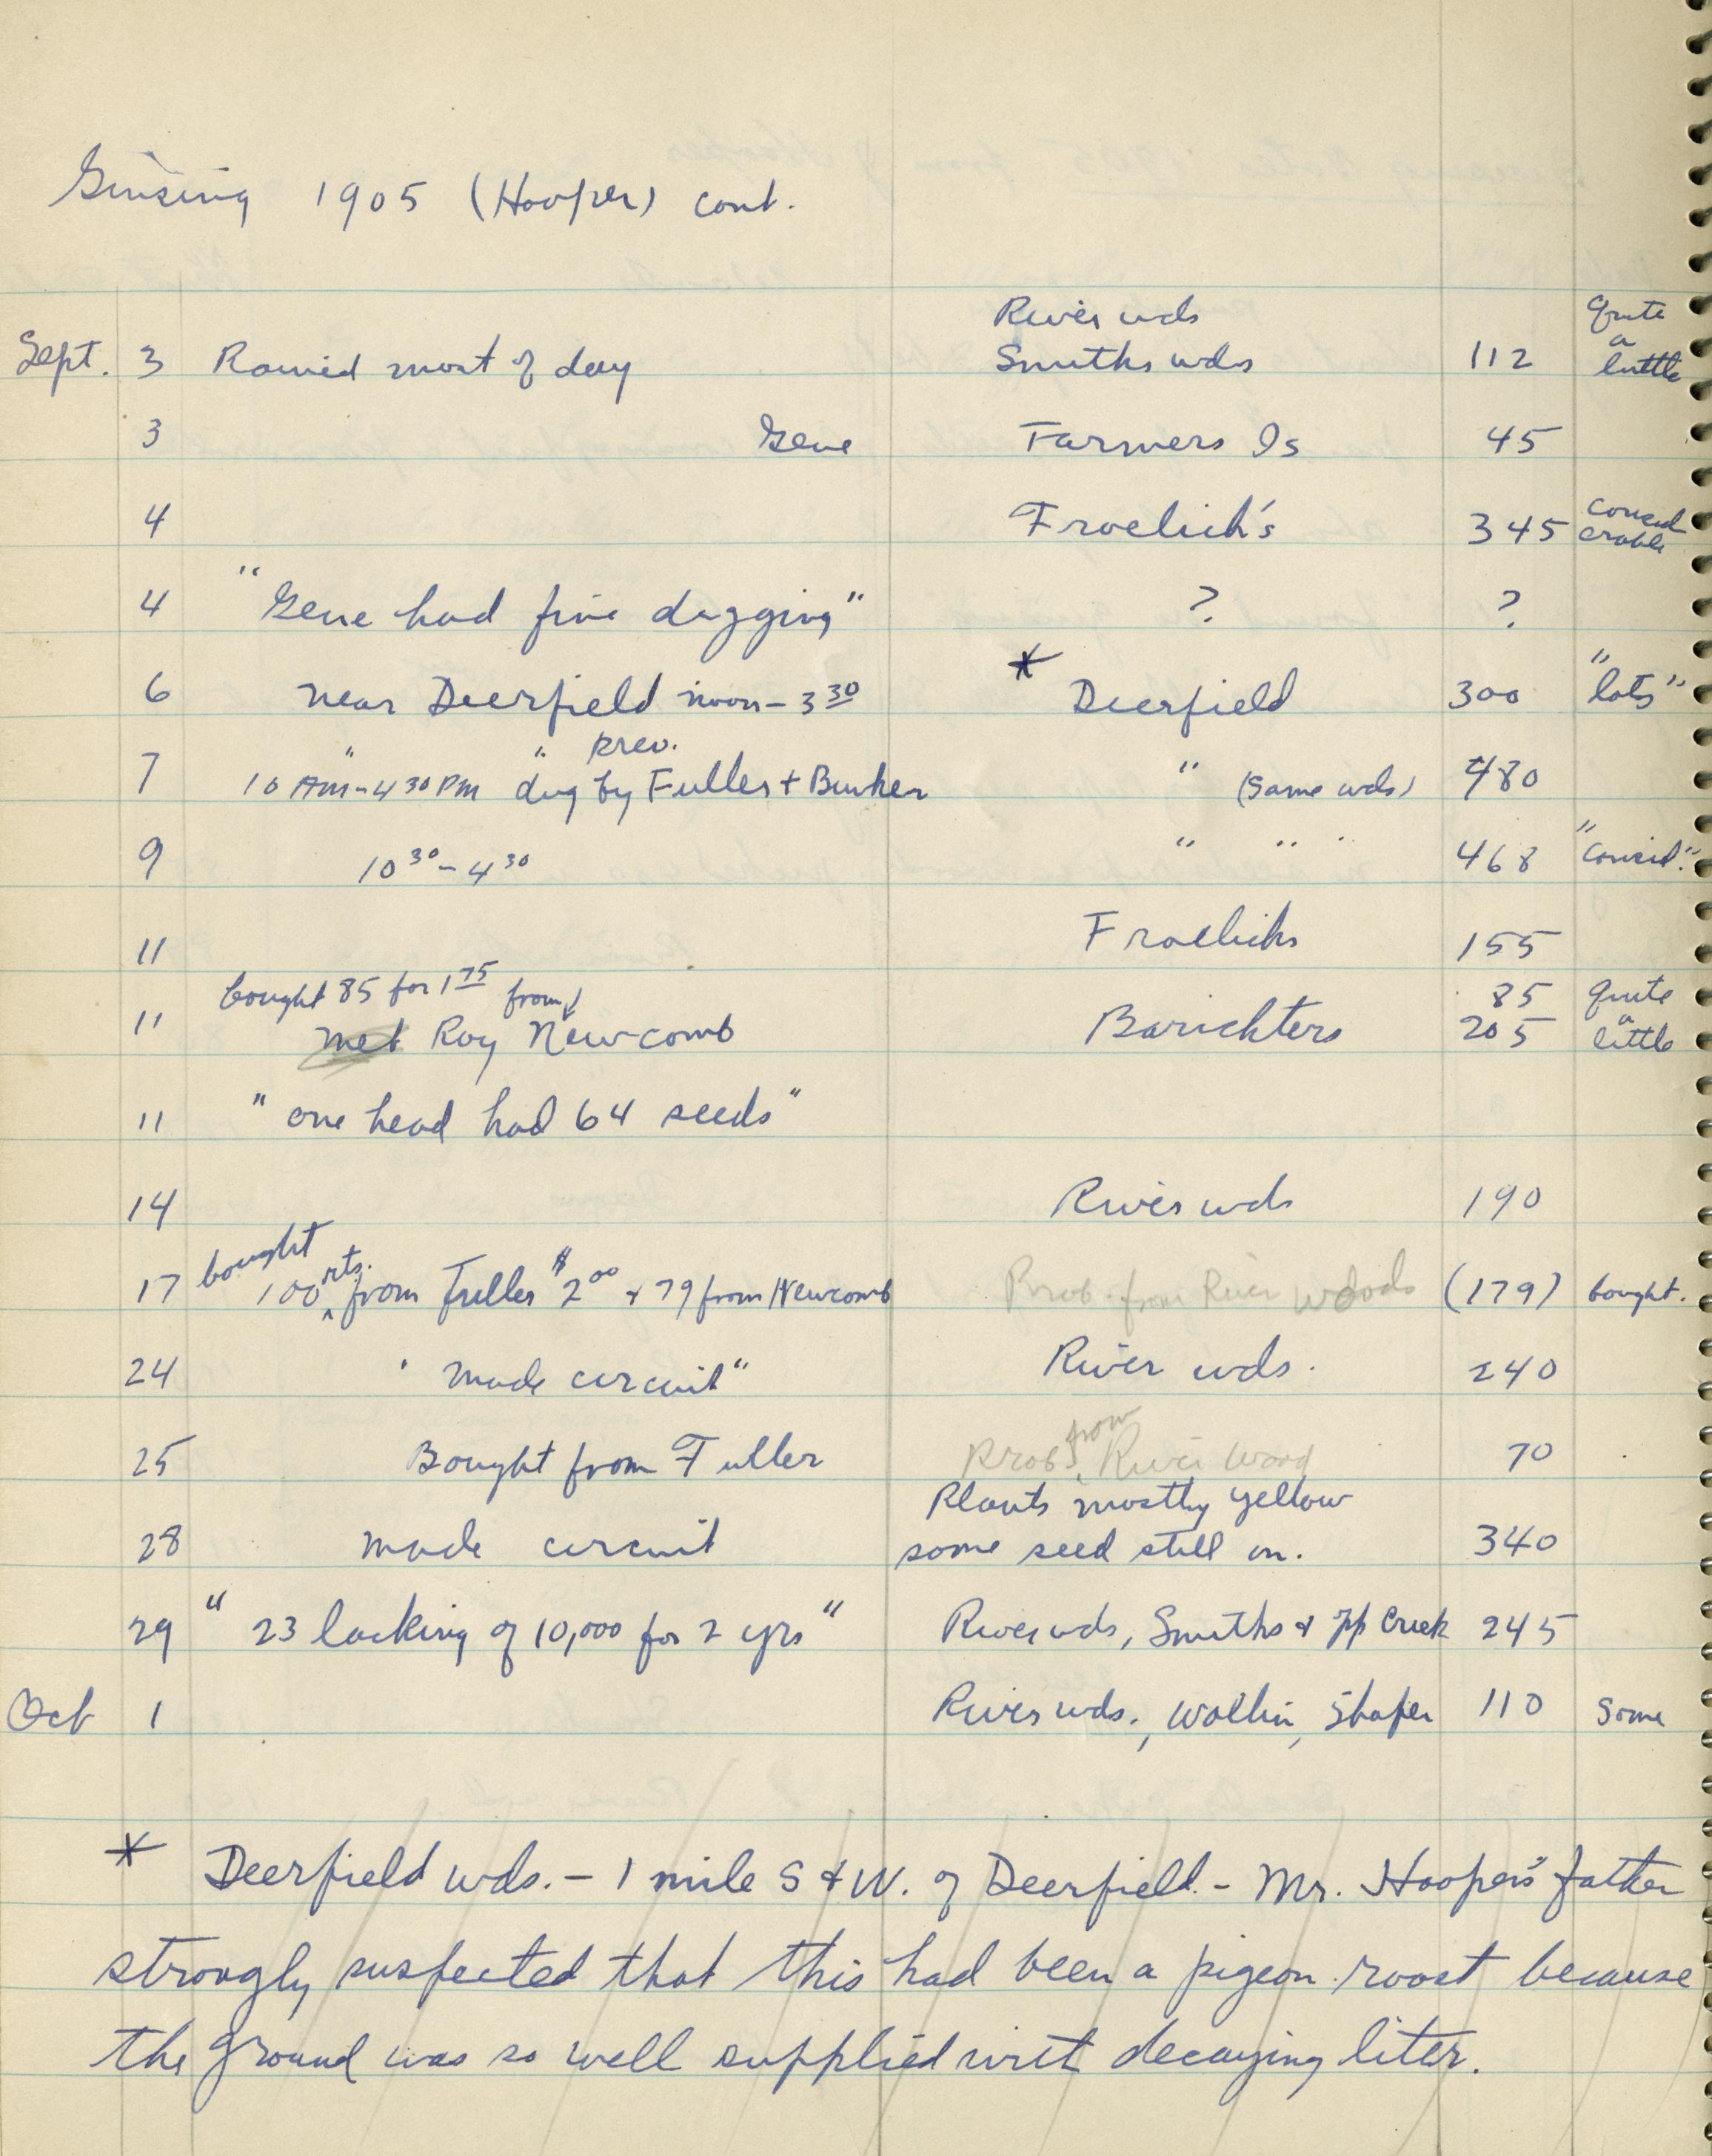 Ginsing 1905 (Hooper) cont.
River wds Quite
Sept. 3 Rained most of day Smiths wds 112 a little
3 Gene Farmers Is 45
4 Froelich's 345 consid erable
4 "Gene had fine digging" ? ?
6 near Deerfield noon - 3 30 * Deerfield 300 "lots"
" " prev.
7 10 AM - 4 30 PM dug by Fuller + Bunker " (same wds) 480
9 10 30 - 4 30 " " " 468 "consid."
11 Froelichs 155
bought 85 for 1 75 from 85 Quite
11 met Roy Newcomb Barichters 205 a little
11 "one head had 64 seeds"
14 River wds 190
bought
17 100 rts. from Fuller $2 00 + 79 from Newcomb Prob. from River Woods (179) bought.
24 "made circuit" River wds. 240
from
25 Bought from Fuller Prob River Woods 70
Plants mostly yellow
28 made circuit some seed still on. 340
29 "23 lacking of 10,000 for 2 yrs" River wds, Smiths + Creek 245
Oct 1 River wds., Wollin, Shafer 110 Some
* Deerfield wds. - 1 mile S + W. of Deerfield. - Mr. Hooper's father
strongly suspected that this had been a pigeon roost because
the ground was so well supplied with decaying liter.